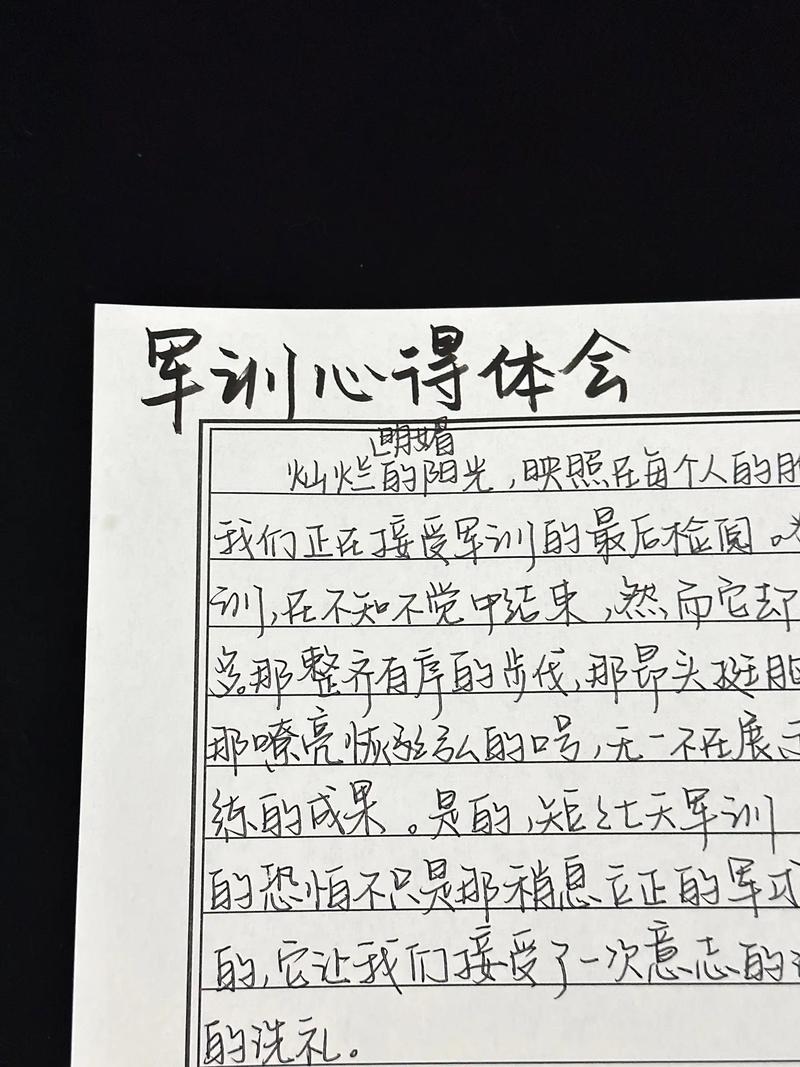 军训心得体会
明媚
灿烂的阳光，映照在每个人的
我们正在接受军训的最后检阅。
训，在不知不觉中结束，然而它却
多。那整齐有序的步伐，那昂头挺胸
那嘹亮恢弘的口号，无一不在展示
练的成果。是的，短短七天军训
的恐怕不只是那稍息立正的军式
的，它让我们接受了一次意志的
的洗礼。